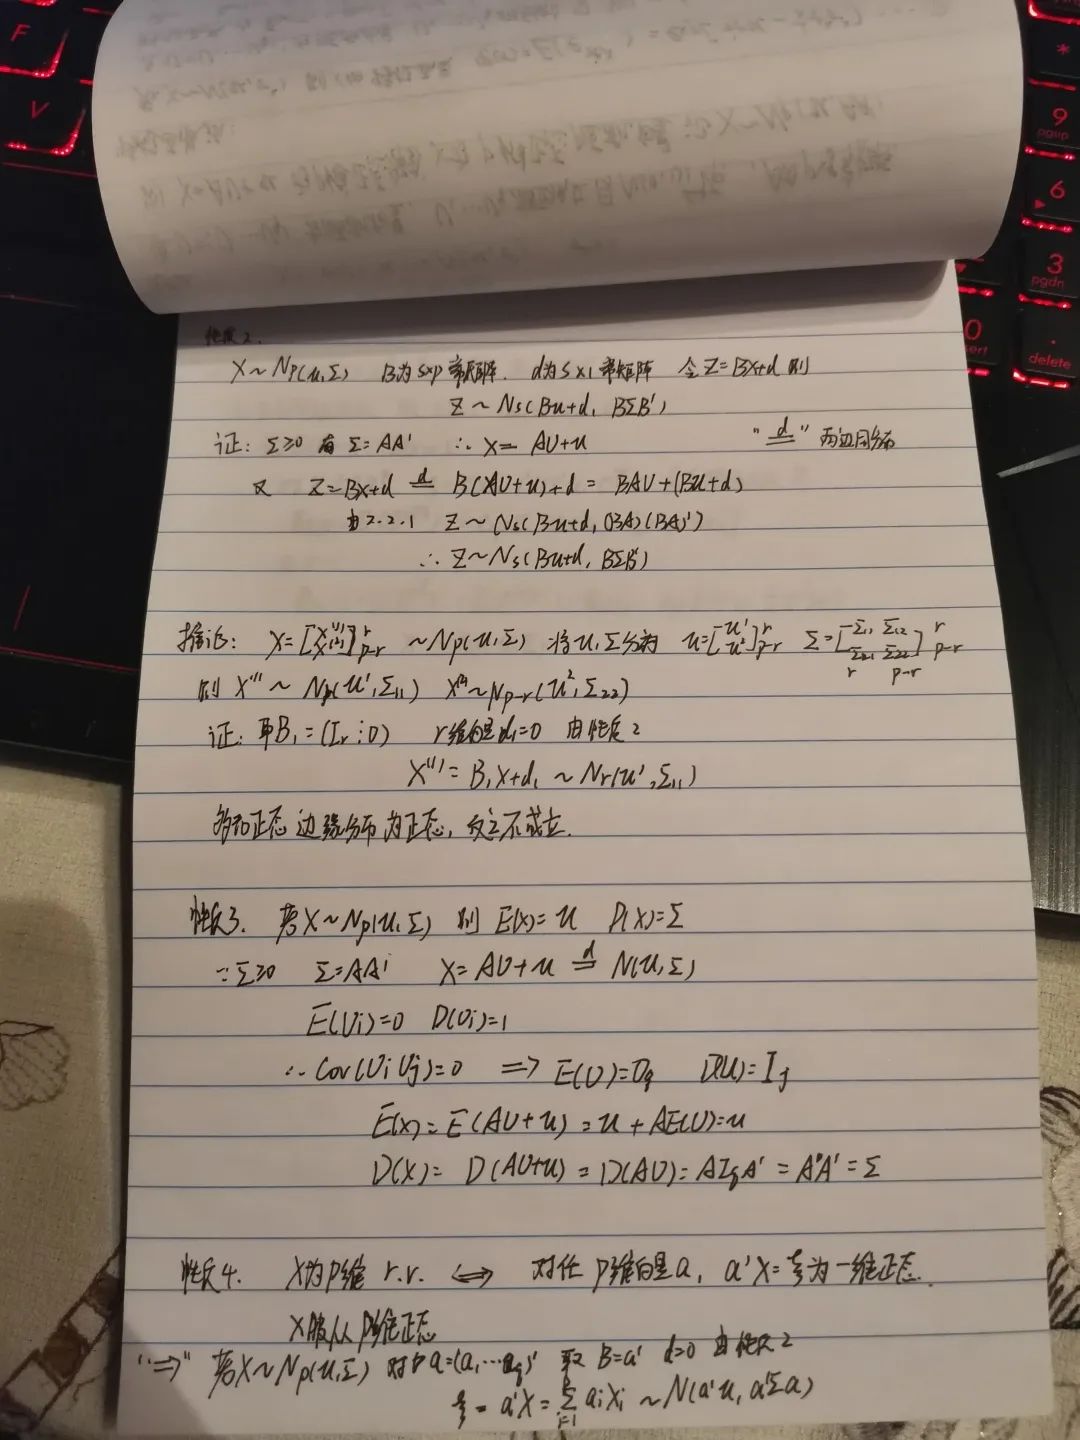 性质2.
X~Np(u,Σ) B为s×p常矩阵. d为s×1常矩阵 令Z=BX+d 则
Z~Ns(Bu+d, BΣB')
证: Σ≥0 有 Σ=AA' ∴ X= AU+u "=ᵈ" 两边同分布
又 Z=BX+d =ᵈ B(AU+u)+d = BAU+(Bu+d)
由2.2.1 Z~Ns(Bu+d, (BA)(BA)')
∴ Z~Ns(Bu+d, BΣB')
推论: X=[X⁽¹⁾ X⁽²⁾] r p-r ~Np(u,Σ) 将u,Σ分为 u=[u¹ u²] r p-r Σ=[Σ₁₁ Σ₁₂ Σ₂₁ Σ₂₂] r p-r
r p-r
则 X⁽¹⁾~N(u¹,Σ₁₁) X⁽²⁾~Np-r(u²,Σ₂₂)
证: 取B₁=(Ir⋮0) r维向量d₁=0 由性质2
X⁽¹⁾=B₁X+d₁ ~Nr(u¹,Σ₁₁)
多元正态 边缘分布为正态, 反之不成立.
性质3. 若X~Np(u,Σ) 则 E(X)=u D(X)=Σ
∵Σ≥0 Σ=AA' X=AU+u =ᵈ N(u,Σ)
E(Ui)=0 D(Ui)=1
∴ Cov(Ui Uj)=0 ⟹ E(U)=0q D(U)=Iq
E(X)=E(AU+u)=u+AE(U)=u
D(X)= D(AU+u)=D(AU)=AIqA'=AA'=Σ
性质4. X为p维 r.v. ⟺ 对任 p维向量a, a'X=ξ为一维正态.
X服从p维正态
"⟹" 若X~Np(u,Σ) 对 a=(a₁⋯)' 取 B=a' d=0 由性质2
ξ=a'X=Σ aiXi ~N(a'u, a'Σa)
i=1
F
V
*
9
pgup
6
3
pgdn
0
.
delete